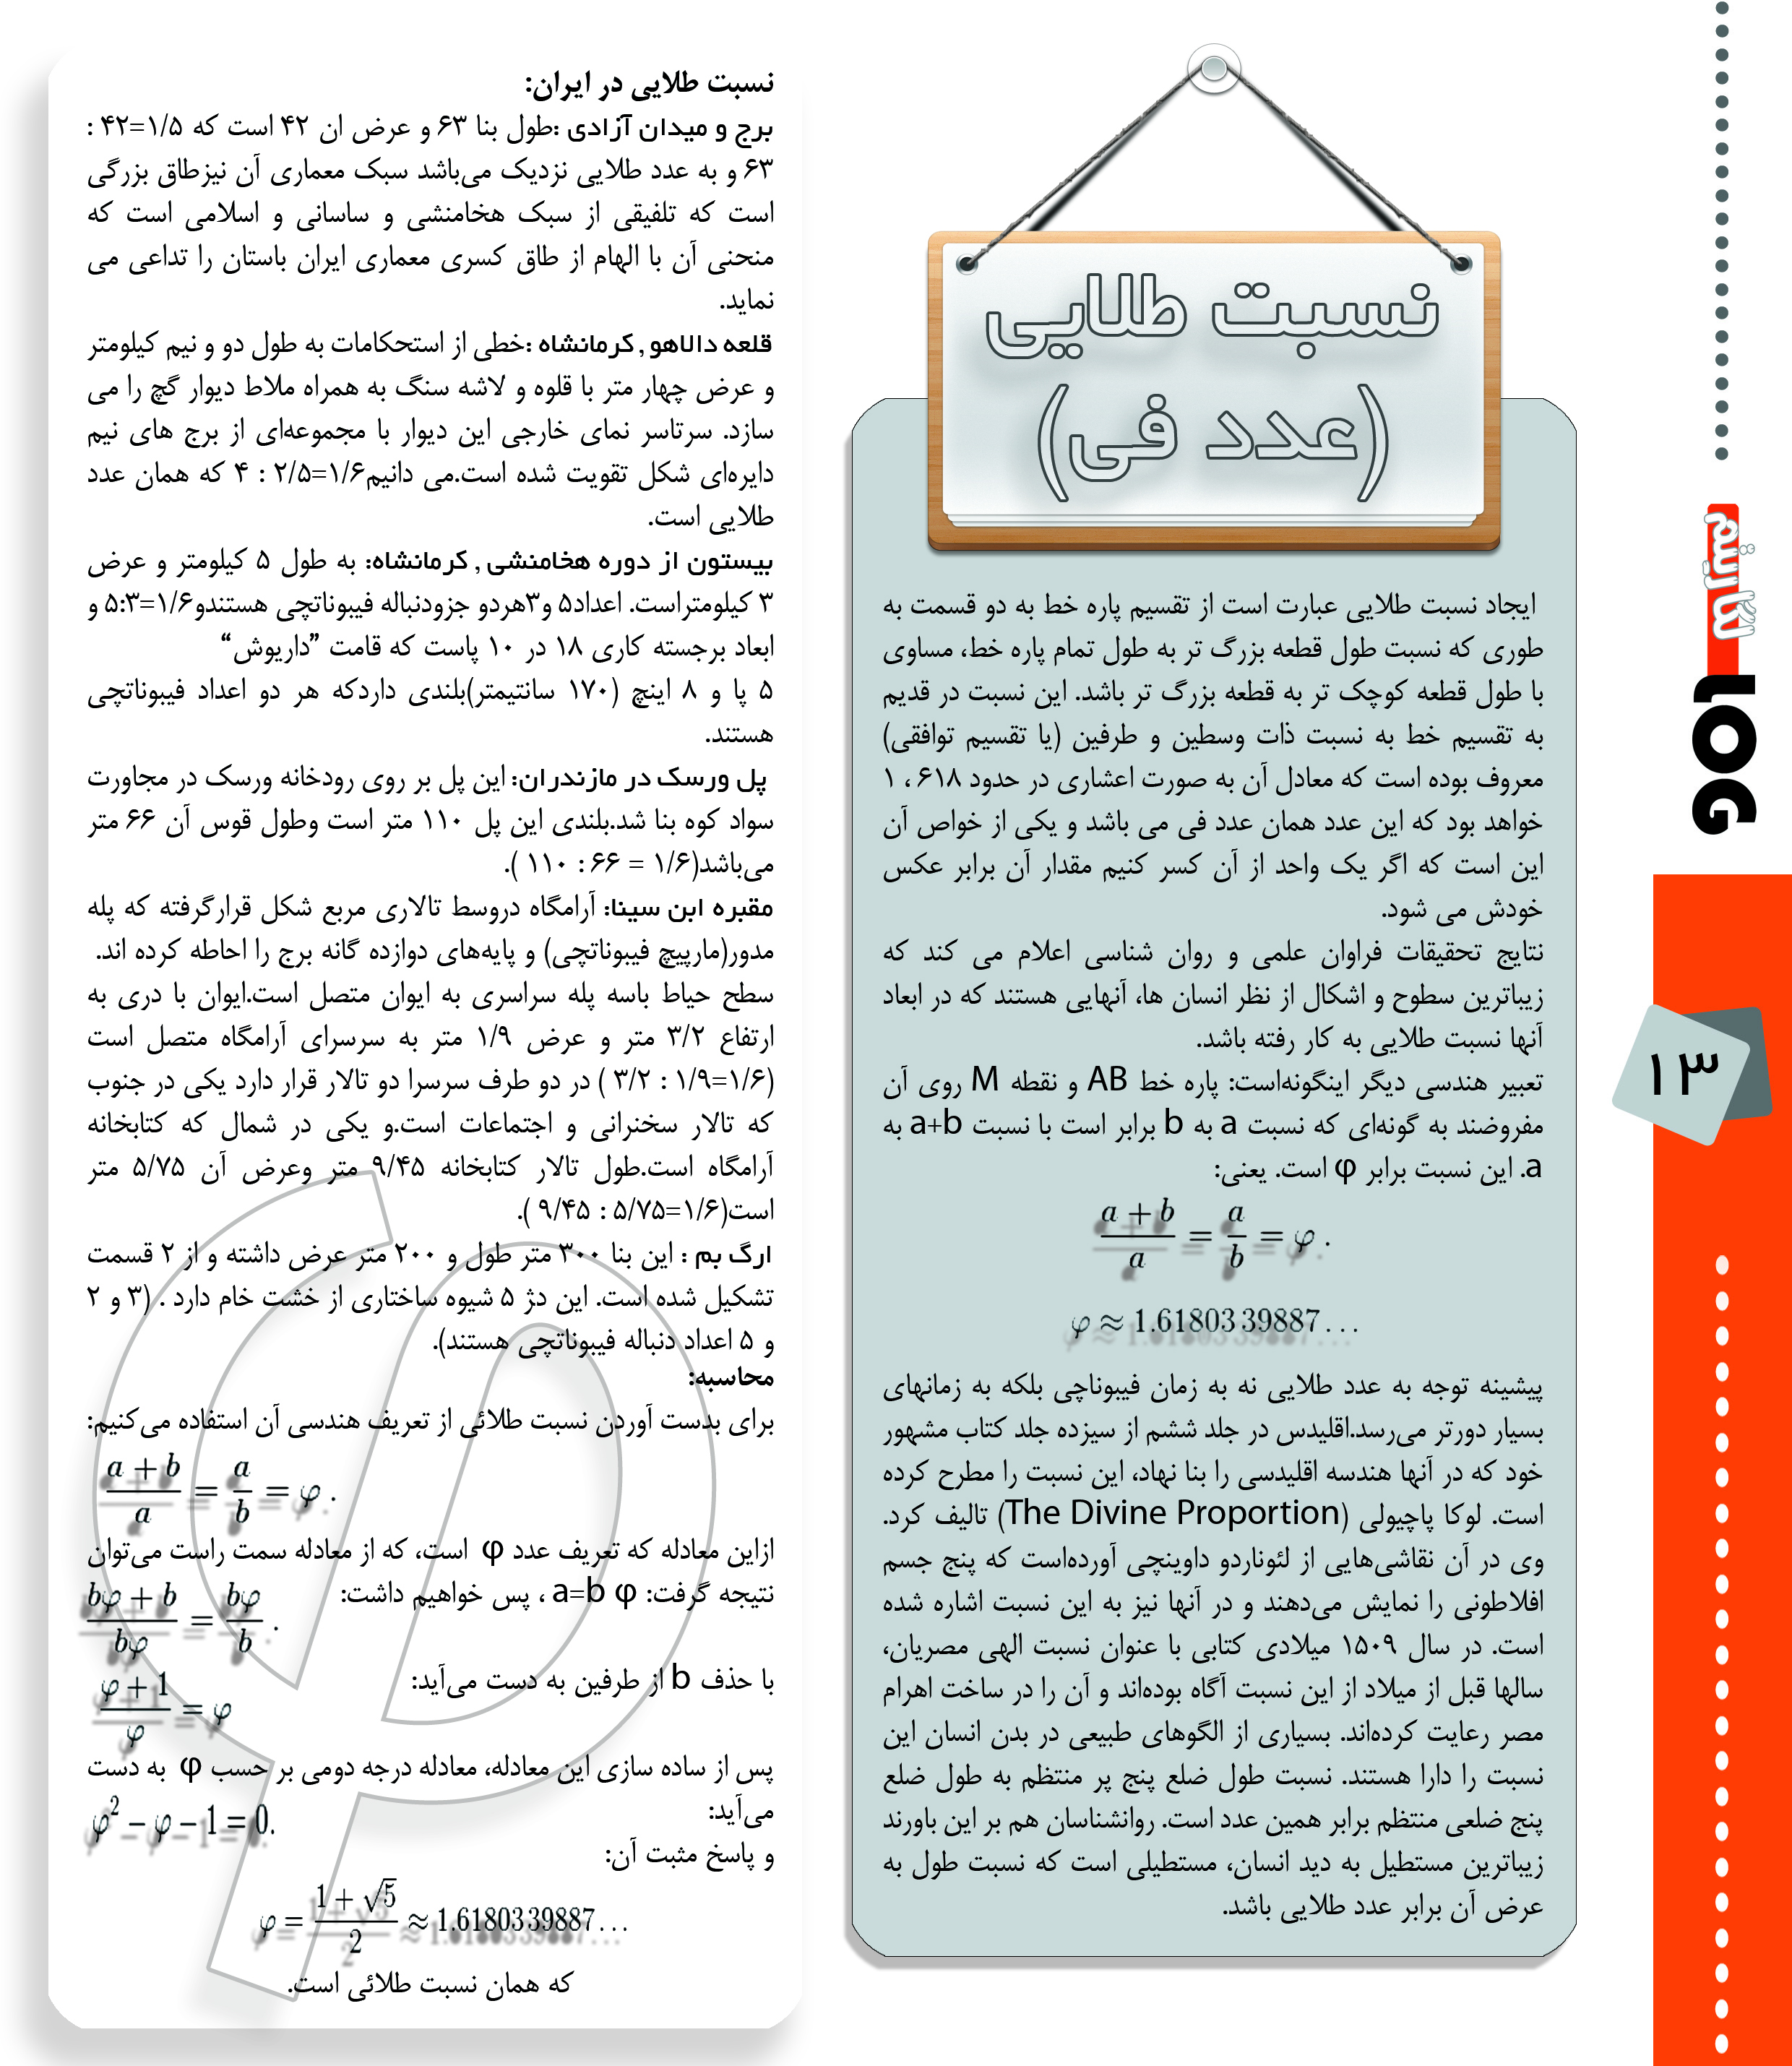 نسبت طلایی
(عدد فی)
ایجاد نسبت طلایی عبارت است از تقسیم پاره خط به دو قسمت به
طوری که نسبت طول قطعه بزرگ تر به طول تمام پاره خط، مساوی
با طول قطعه کوچک تر به قطعه بزرگ تر باشد. این نسبت در قدیم
به تقسیم خط به نسبت ذات وسطین و طرفین (یا تقسیم توافقی)
معروف بوده است که معادل آن به صورت اعشاری در حدود ۶۱۸ ، ۱
خواهد بود که این عدد همان عدد فی می باشد و یکی از خواص آن
این است که اگر یک واحد از آن کسر کنیم مقدار آن برابر عکس
خودش می شود.
نتایج تحقیقات فراوان علمی و روان شناسی اعلام می کند که
زیباترین سطوح و اشکال از نظر انسان ها، آنهایی هستند که در ابعاد
آنها نسبت طلایی به کار رفته باشد.
تعبیر هندسی دیگر اینگونه‌است: پاره خط AB و نقطه M روی آن
مفروضند به گونه‌ای که نسبت a به b برابر است با نسبت a+b به
a. این نسبت برابر φ است. یعنی:
(a + b)/a = a/b = φ .
φ ≈ 1.6180339887...
پیشینه توجه به عدد طلایی نه به زمان فیبوناچی بلکه به زمانهای
بسیار دورتر می‌رسد.اقلیدس در جلد ششم از سیزده جلد کتاب مشهور
خود که در آنها هندسه اقلیدسی را بنا نهاد، این نسبت را مطرح کرده
است. لوکا پاچیولی (The Divine Proportion) تالیف کرد.
وی در آن نقاشی‌هایی از لئوناردو داوینچی آورده‌است که پنج جسم
افلاطونی را نمایش می‌دهند و در آنها نیز به این نسبت اشاره شده
است. در سال ۱۵۰۹ میلادی کتابی با عنوان نسبت الهی مصریان،
سالها قبل از میلاد از این نسبت آگاه بوده‌اند و آن را در ساخت اهرام
مصر رعایت کرده‌اند. بسیاری از الگوهای طبیعی در بدن انسان این
نسبت را دارا هستند. نسبت طول ضلع پنج پر منتظم به طول ضلع
پنج ضلعی منتظم برابر همین عدد است. روانشناسان هم بر این باورند
زیباترین مستطیل به دید انسان، مستطیلی است که نسبت طول به
عرض آن برابر عدد طلایی باشد.
نسبت طلایی در ایران:
برج و میدان آزادی :طول بنا ۶۳ و عرض ان ۴۲ است که ۱/۵=۴۲ :
۶۳ و به عدد طلایی نزدیک می‌باشد سبک معماری آن نیزطاق بزرگی
است که تلفیقی از سبک هخامنشی و ساسانی و اسلامی است که
منحنی آن با الهام از طاق کسری معماری ایران باستان را تداعی می
نماید.
قلعه دالاهو , کرمانشاه :خطی از استحکامات به طول دو و نیم کیلومتر
و عرض چهار متر با قلوه و لاشه سنگ به همراه ملاط دیوار گچ را می
سازد. سرتاسر نمای خارجی این دیوار با مجموعه‌ای از برج های نیم
دایره‌ای شکل تقویت شده است.می دانیم۱/۶=۲/۵ : ۴ که همان عدد
طلایی است.
بیستون از دوره هخامنشی , کرمانشاه: به طول ۵ کیلومتر و عرض
۳ کیلومتراست. اعداد۵ و۳هردو جزودنباله فیبوناتچی هستندو۱/۶=۵:۳ و
ابعاد برجسته کاری ۱۸ در ۱۰ پاست که قامت ”داریوش“
۵ پا و ۸ اینچ (۱۷۰ سانتیمتر)بلندی داردکه هر دو اعداد فیبوناتچی
هستند.
پل ورسک در مازندران: این پل بر روی رودخانه ورسک در مجاورت
سواد کوه بنا شد.بلندی این پل ۱۱۰ متر است وطول قوس آن ۶۶ متر
می‌باشد(۱/۶ = ۶۶ : ۱۱۰ ).
مقبره ابن سینا: آرامگاه دروسط تالاری مربع شکل قرارگرفته که پله
مدور(مارپیچ فیبوناتچی) و پایه‌های دوازده گانه برج را احاطه کرده اند.
سطح حیاط باسه پله سراسری به ایوان متصل است.ایوان با دری به
ارتفاع ۳/۲ متر و عرض ۱/۹ متر به سرسرای آرامگاه متصل است
(۱/۶=۱/۹ : ۳/۲ ) در دو طرف سرسرا دو تالار قرار دارد یکی در جنوب
که تالار سخنرانی و اجتماعات است.و یکی در شمال که کتابخانه
آرامگاه است.طول تالار کتابخانه ۹/۴۵ متر وعرض آن ۵/۷۵ متر
است(۱/۶=۵/۷۵ : ۹/۴۵ ).
ارگ بم : این بنا ۳۰۰ متر طول و ۲۰۰ متر عرض داشته و از ۲ قسمت
تشکیل شده است. این دژ ۵ شیوه ساختاری از خشت خام دارد . (۳ و ۲
و ۵ اعداد دنباله فیبوناتچی هستند).
محاسبه:
برای بدست آوردن نسبت طلائی از تعریف هندسی آن استفاده می‌کنیم:
(a + b)/a = a/b = φ .
ازاین معادله که تعریف عدد φ است، که از معادله سمت راست می‌توان
نتیجه گرفت: a=b φ ، پس خواهیم داشت:
(bφ + b)/bφ = bφ/b .
با حذف b از طرفین به دست می‌آید:
(φ + 1)/φ = φ
پس از ساده سازی این معادله، معادله درجه دومی بر حسب φ به دست
می‌آید:
φ² − φ − 1 = 0.
و پاسخ مثبت آن:
φ = (1 + √5)/2 ≈ 1.6180339887...
که همان نسبت طلائی است.
۱۳